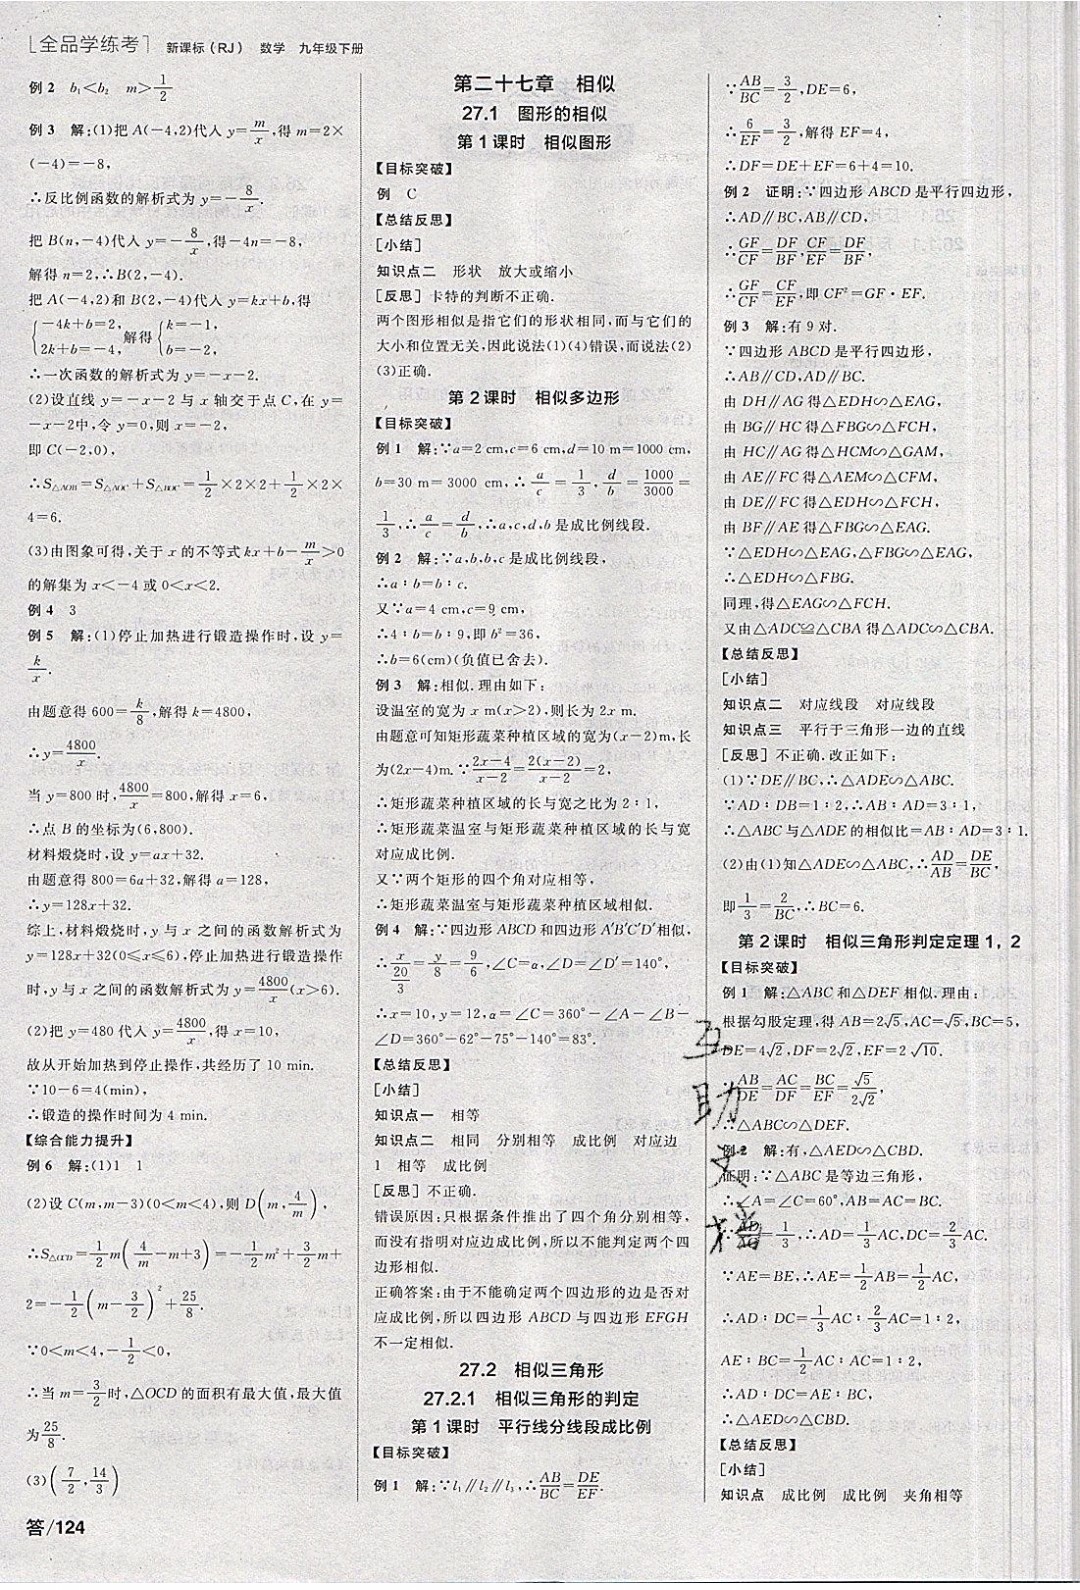 [全品学练考] 新课标(RJ) 数学 九年级下册
例2 b₁<b₂ m>1/2
例3 解:(1)把A(-4,2)代入y=m/x,得m=2×
(-4)=-8,
∴反比例函数的解析式为y=-8/x.
把B(n,-4)代入y=-8/x,得-4n=-8,
解得n=2,∴B(2,-4).
把A(-4,2)和B(2,-4)代入y=kx+b,得
{-4k+b=2, 2k+b=-4, 解得{k=-1, b=-2,
∴一次函数的解析式为y=-x-2.
(2)设直线y=-x-2与x轴交于点C,在y=
-x-2中,令y=0,则x=-2,
即C(-2,0),
∴S△AOB=S△AOC+S△BOC=1/2×2×2+1/2×2×
4=6.
(3)由图象可得,关于x的不等式kx+b-m/x>0
的解集为x<-4或0<x<2.
例4 3
例5 解:(1)停止加热进行锻造操作时,设y=
k/x.
由题意得600=k/8,解得k=4800,
∴y=4800/x.
当y=800时,4800/x=800,解得x=6,
∴点B的坐标为(6,800).
材料煅烧时,设y=ax+32.
由题意得800=6a+32,解得a=128,
∴y=128x+32.
综上,材料煅烧时,y与x之间的函数解析式为
y=128x+32(0≤x≤6),停止进行锻造操作
时,y与x之间的函数解析式为y=4800/x(x>6).
(2)把y=480代入y=4800/x,得x=10,
故从开始加热到停止操作,共经历了10 min.
∵10-6=4(min),
∴锻造的操作时间为4 min.
【综合能力提升】
例6 解:(1)1 1
(2)设C(m,m-3)(0<m<4),则D(m,4/m),
∴S△OCD=1/2m(4/m-m+3)=-1/2m²+3/2m+
2=-1/2(m-3/2)²+25/8.
∵0<m<4,-1/2<0,
∴当m=3/2时,△OCD的面积有最大值,最大值
为25/8.
(3)(7/2,14/3)
答/124
第二十七章 相似
27.1 图形的相似
第1课时 相似图形
【目标突破】
例 C
【总结反思】
[小结]
知识点二 形状 放大或缩小
[反思] 卡特的判断不正确.
两个图形相似是指它们的形状相同,而与它们的
大小和位置无关,因此说法(1)(4)错误,而说法(2)
(3)正确.
第2课时 相似多边形
【目标突破】
例1 解:∵a=2 cm,c=6 cm,d=10 m=1000 cm,
b=30 m=3000 cm,∴a/c=1/3,d/b=1000/3000=
1/3,∴a/c=d/b,∴a,c,d,b是成比例线段.
例2 解:∵a,b,b,c是成比例线段,
∴a∶b=b∶c.
又∵a=4 cm,c=9 cm,
∴4∶b=b∶9,即b²=36,
∴b=6(cm)(负值已舍去).
例3 解:相似.理由如下:
设温室的宽为x m(x>2),则长为2x m.
由题意可知矩形蔬菜种植区域的宽为(x-2)m,长
为(2x-4)m.∵2x-4/x-2=2(x-2)/x-2=2,
∴矩形蔬菜种植区域的长与宽之比为2∶1,
∴矩形蔬菜温室与矩形蔬菜种植区域的长与宽
对应成比例.
又∵两个矩形的四个角对应相等,
∴矩形蔬菜温室与矩形蔬菜种植区域相似.
例4 解:∵四边形ABCD和四边形A′B′C′D′相似,
∴x/(20/3)=y/8=9/6,∠C=α,∠D=∠D′=140°,
∴x=10,y=12,α=∠C=360°-∠A-∠B-
∠D=360°-62°-75°-140°=83°.
【总结反思】
[小结]
知识点一 相等
知识点二 相同 分别相等 成比例 对应边
1 相等 成比例
[反思] 不正确.
错误原因:只根据条件推出了四个角分别相等,
而没有指明对应边成比例,所以不能判定两个四
边形相似.
正确答案:由于不能确定两个四边形的边是否对
应成比例,所以四边形ABCD与四边形EFGH
不一定相似.
27.2 相似三角形
27.2.1 相似三角形的判定
第1课时 平行线分线段成比例
【目标突破】
例1 解:∵l₁∥l₂∥l₃,∴AB/BC=DE/EF.
∵AB/BC=3/2,DE=6,
∴6/EF=3/2,解得EF=4,
∴DF=DE+EF=6+4=10.
例2 证明:∵四边形ABCD是平行四边形,
∴AD∥BC,AB∥CD,
∴GF/CF=DF/BF,CF/EF=DF/BF,
∴GF/CF=CF/EF,即CF²=GF·EF.
例3 解:有9对.
∵四边形ABCD是平行四边形,
∴AB∥CD,AD∥BC.
由DH∥AG得△EDH∽△EAG,
由BG∥HC得△FBG∽△FCH,
由HC∥AG得△HCM∽△GAM,
由AE∥FC得△AEM∽△CFM,
由DE∥FC得△EDH∽△FCH,
由BF∥AE得△FBG∽△EAG.
∵△EDH∽△EAG,△FBG∽△EAG,
∴△EDH∽△FBG.
同理,得△EAG∽△FCH.
又由△ADC≌△CBA得△ADC∽△CBA.
【总结反思】
[小结]
知识点二 对应线段 对应线段
知识点三 平行于三角形一边的直线
[反思] 不正确.改正如下:
(1)∵DE∥BC,∴△ADE∽△ABC.
∵AD∶DB=1∶2,∴AB∶AD=3∶1,
∴△ABC与△ADE的相似比=AB∶AD=3∶1.
(2)由(1)知△ADE∽△ABC,∴AD/AB=DE/BC,
即1/3=2/BC,∴BC=6.
第2课时 相似三角形判定定理1,2
【目标突破】
例1 解:△ABC和△DEF相似.理由:
根据勾股定理,得AB=2√5,AC=√5,BC=5,
DE=4√2,DF=2√2,EF=2√10.
∵AB/DE=AC/DF=BC/EF=√5/2√2,
∴△ABC∽△DEF.
例2 解:有,△AED∽△CBD.
证明:∵△ABC是等边三角形,
∴∠A=∠C=60°,AB=AC=BC.
∵AD/AC=1/3,∴AD=1/3AC,DC=2/3AC.
∵AE=BE,∴AE=1/2AB=1/2AC,
∴AD∶DC=1/3AC∶2/3AC=1∶2,
AE∶BC=1/2AC∶AC=1∶2,
∴AD∶DC=AE∶BC,
∴△AED∽△CBD.
【总结反思】
[小结]
知识点 成比例 成比例 夹角相等
互助文档